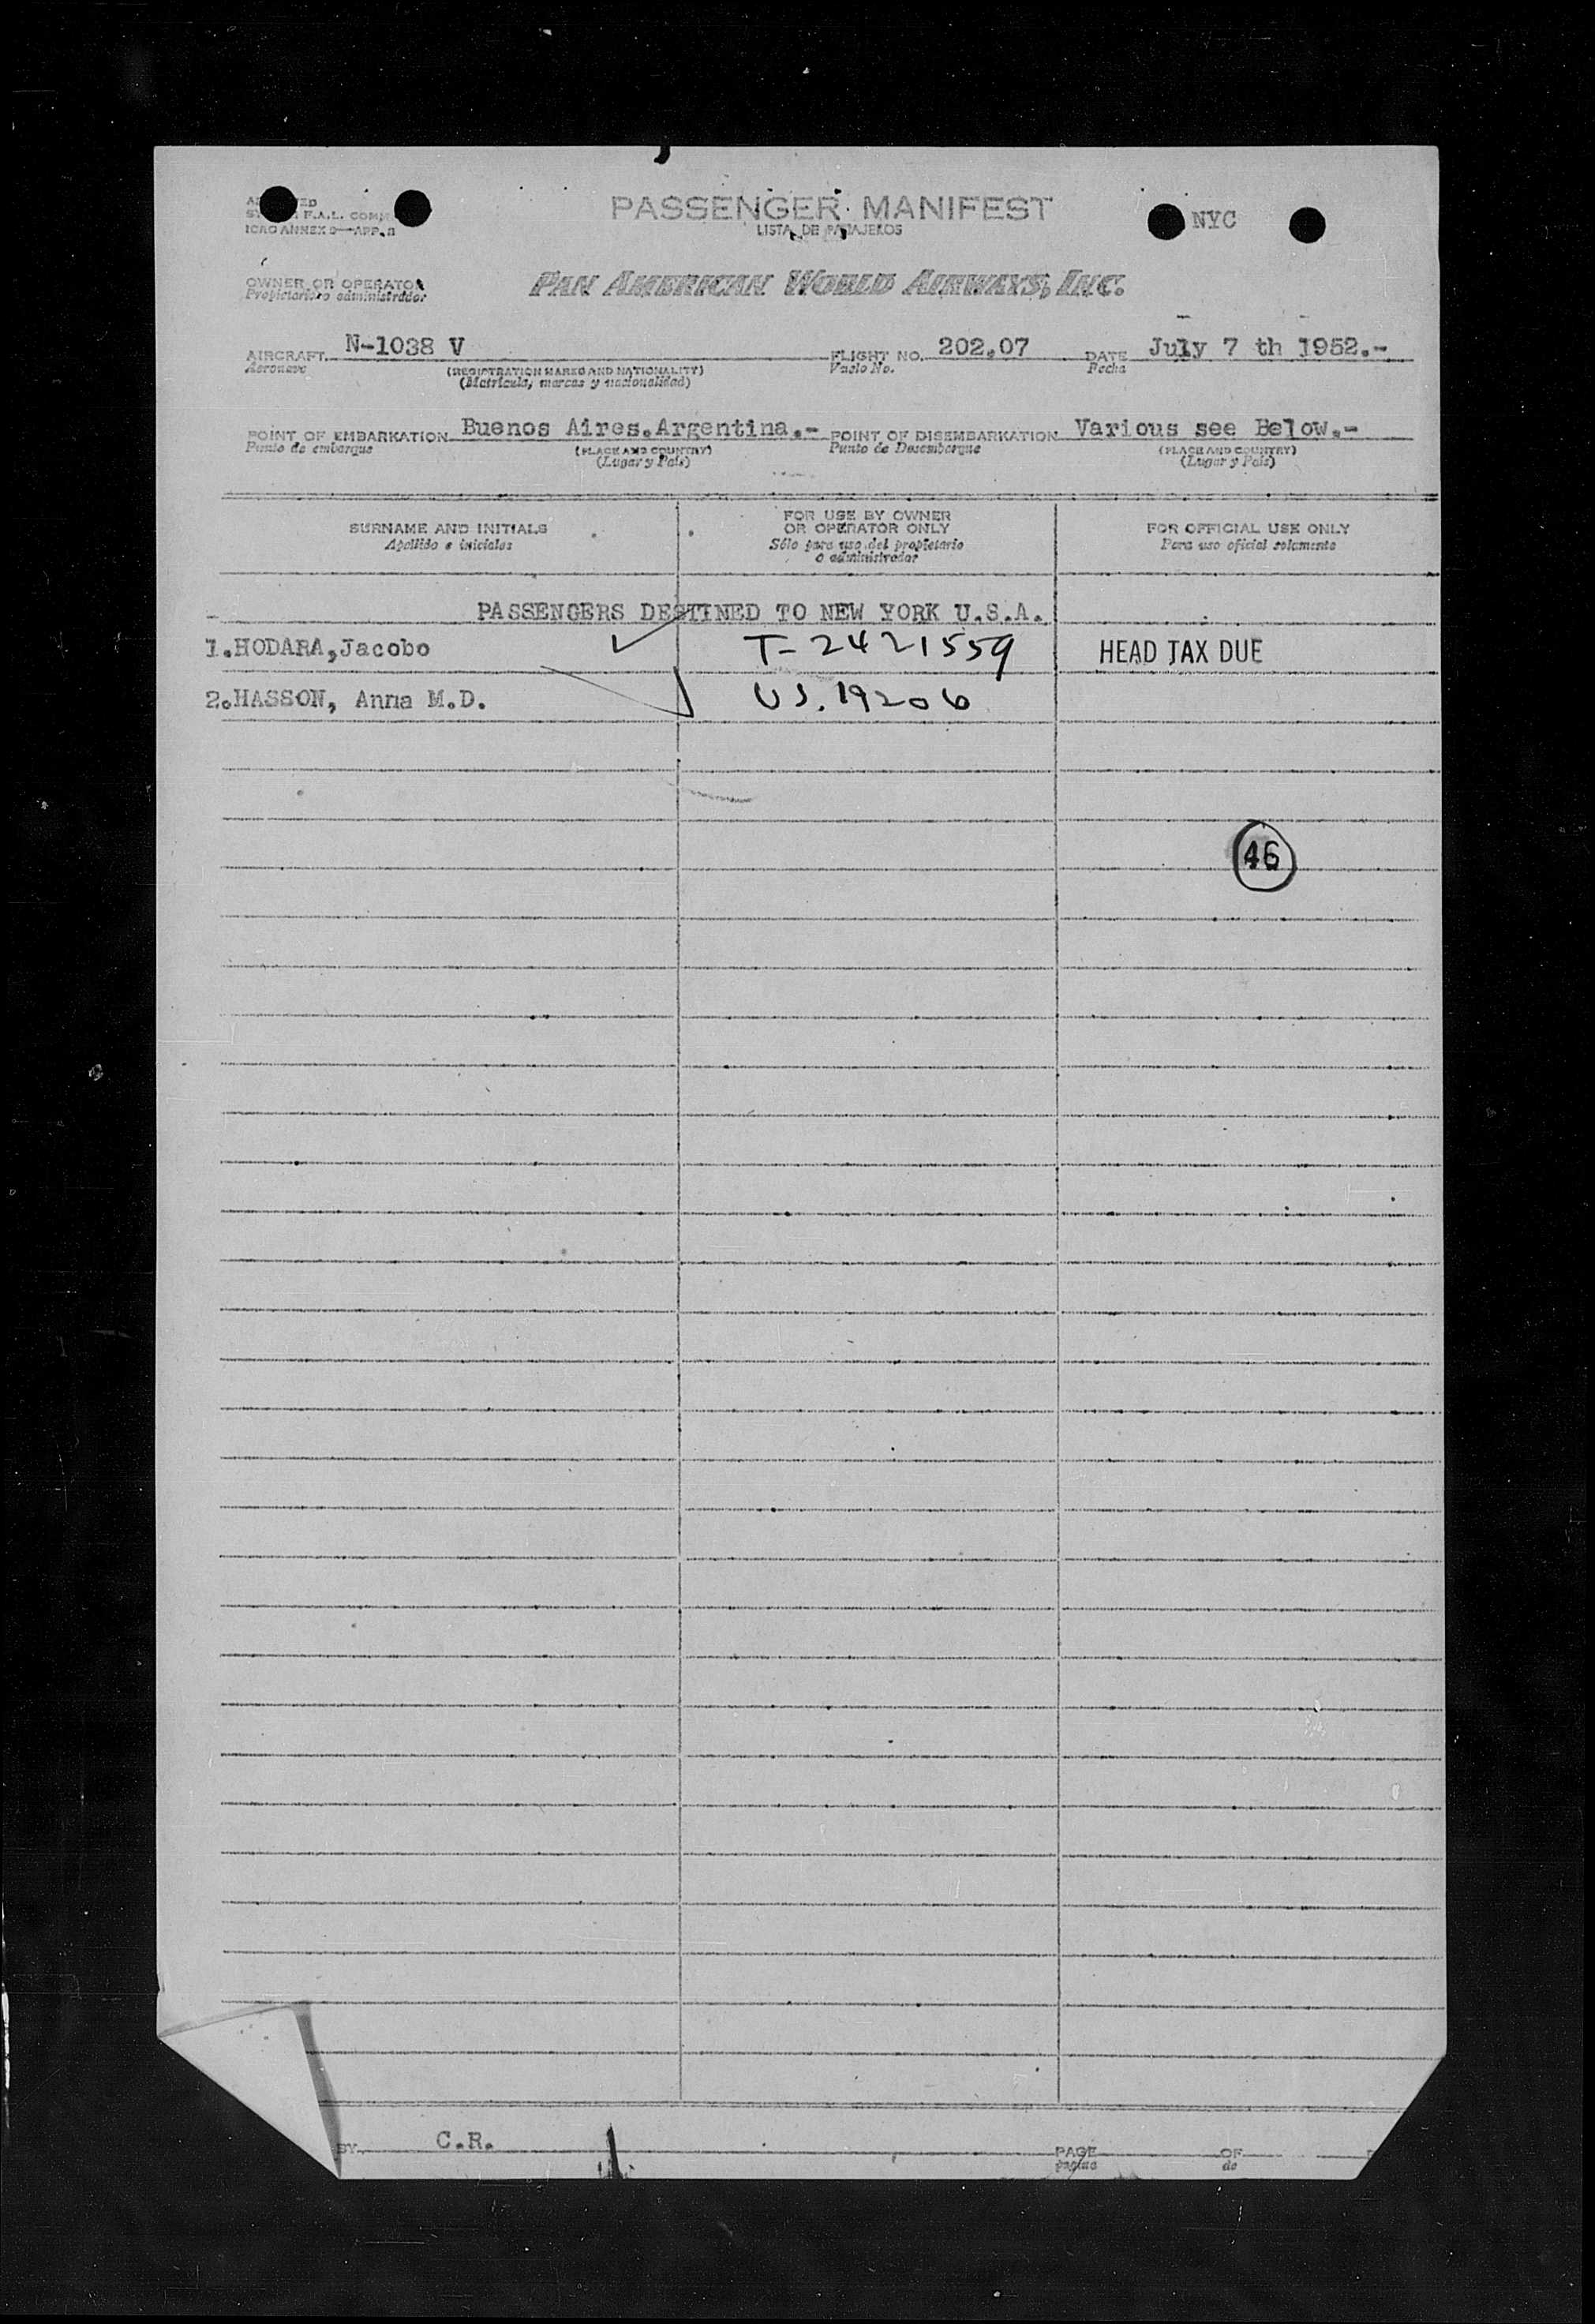 PASSENGER MANIFEST
LISTA DE PASAJEROS
NYC
F.A.L. COMM
ICAO ANNEX 9—APP. B
OWNER OR OPERATOR
Propietario o administrador
PAN AMERICAN WORLD AIRWAYS, INC.
AIRCRAFT N-1038 V FLIGHT NO. 202.07 DATE July 7 th 1952.-
Aeronave (REGISTRATION MARKS AND NATIONALITY) Vuelo No. Fecha
(Matrícula, marcas y nacionalidad)
POINT OF EMBARKATION Buenos Aires.Argentina.- POINT OF DISEMBARKATION Various see Below.-
Punto de embarque (PLACE AND COUNTRY) Punto de Desembarque (PLACE AND COUNTRY)
(Lugar y País) (Lugar y País)
SURNAME AND INITIALS
Apellido e iniciales
FOR USE BY OWNER
OR OPERATOR ONLY
Sólo para uso del propietario
o administrador
FOR OFFICIAL USE ONLY
Para uso oficial solamente
PASSENGERS DESTINED TO NEW YORK U.S.A.
1.HODARA,Jacobo T-2421559 HEAD TAX DUE
2.HASSON, Anna M.D. US.19206
46
BY C.R. PAGE OF
página de